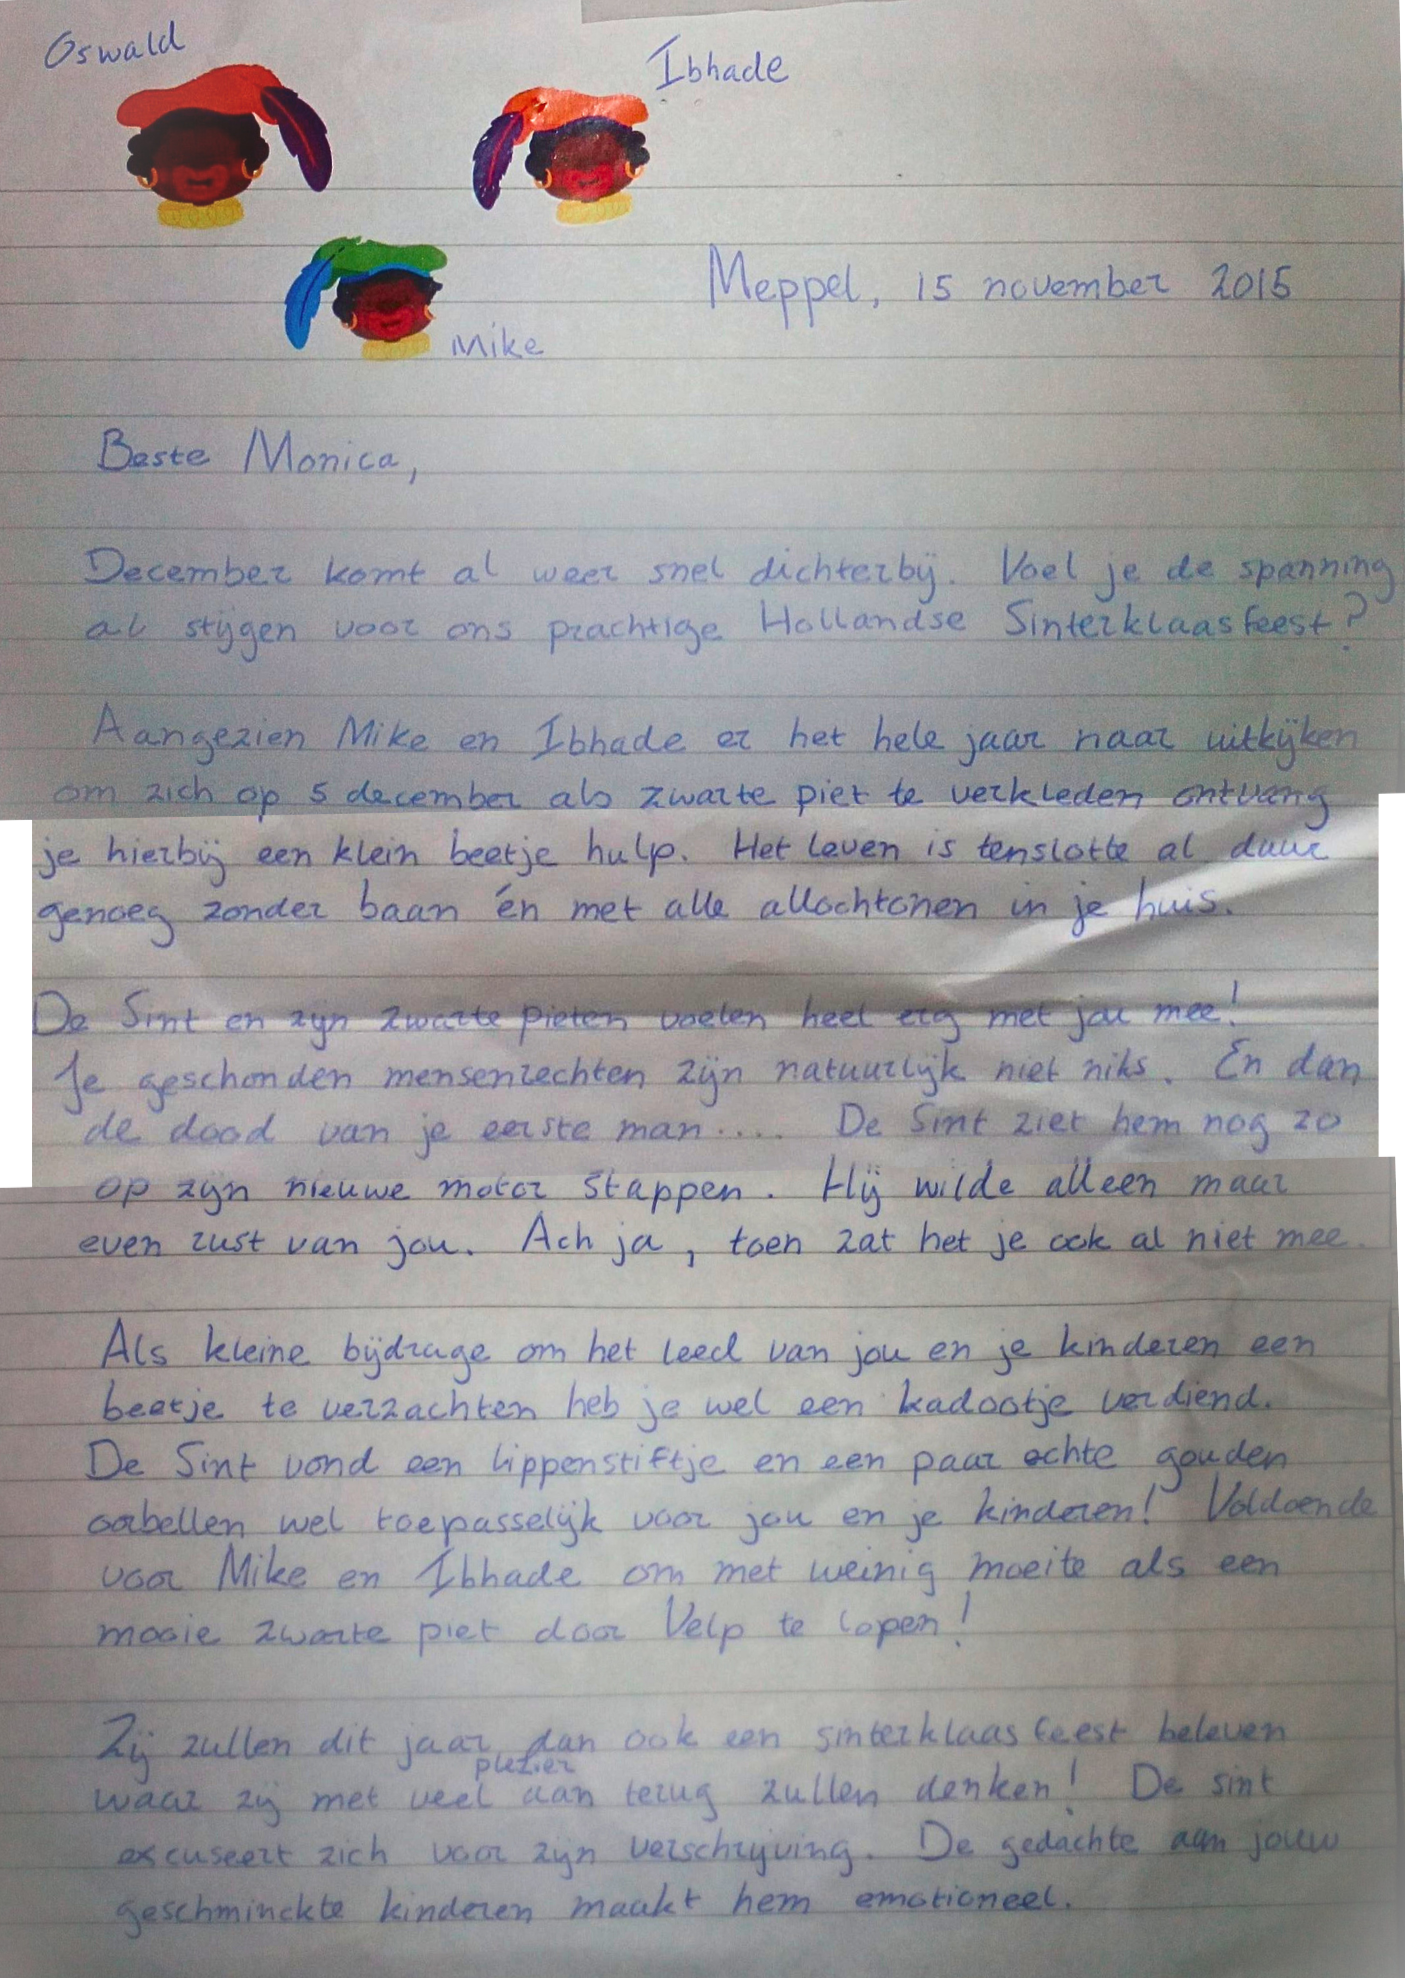 Oswald
Ibhade
Mike
Meppel, 15 november 2015
Beste Monica,
December komt al weer snel dichterbij. Voel je de spanning
al stijgen voor ons prachtige Hollandse Sinterklaasfeest?
Aangezien Mike en Ibhade er het hele jaar naar uitkijken
om zich op 5 december als zwarte piet te verkleden ontvang
je hierbij een klein beetje hulp. Het leven is tenslotte al duur
genoeg zonder baan én met alle allochtonen in je huis.
De Sint en zijn zwarte pieten voelen heel erg met jou mee!
Je geschonden mensenrechten zijn natuurlijk niet niks. En dan
de dood van je eerste man.... De Sint ziet hem nog zo
op zijn nieuwe motor stappen. Hij wilde alleen maar
even rust van jou. Ach ja, toen zat het je ook al niet mee.
Als kleine bijdrage om het leed van jou en je kinderen een
beetje te verzachten heb je wel een kadootje verdiend.
De Sint vond een lippenstiftje en een paar echte gouden
oorbellen wel toepasselijk voor jou en je kinderen! Voldoende
voor Mike en Ibhade om met weinig moeite als een
mooie zwarte piet door Velp te lopen!
Zij zullen dit jaar dan ook een sinterklaasfeest beleven
plezier
waar zij met veel aan terug zullen denken! De sint
excuseert zich voor zijn verschrijving. De gedachte aan jouw
geschminckte kinderen maakt hem emotioneel.